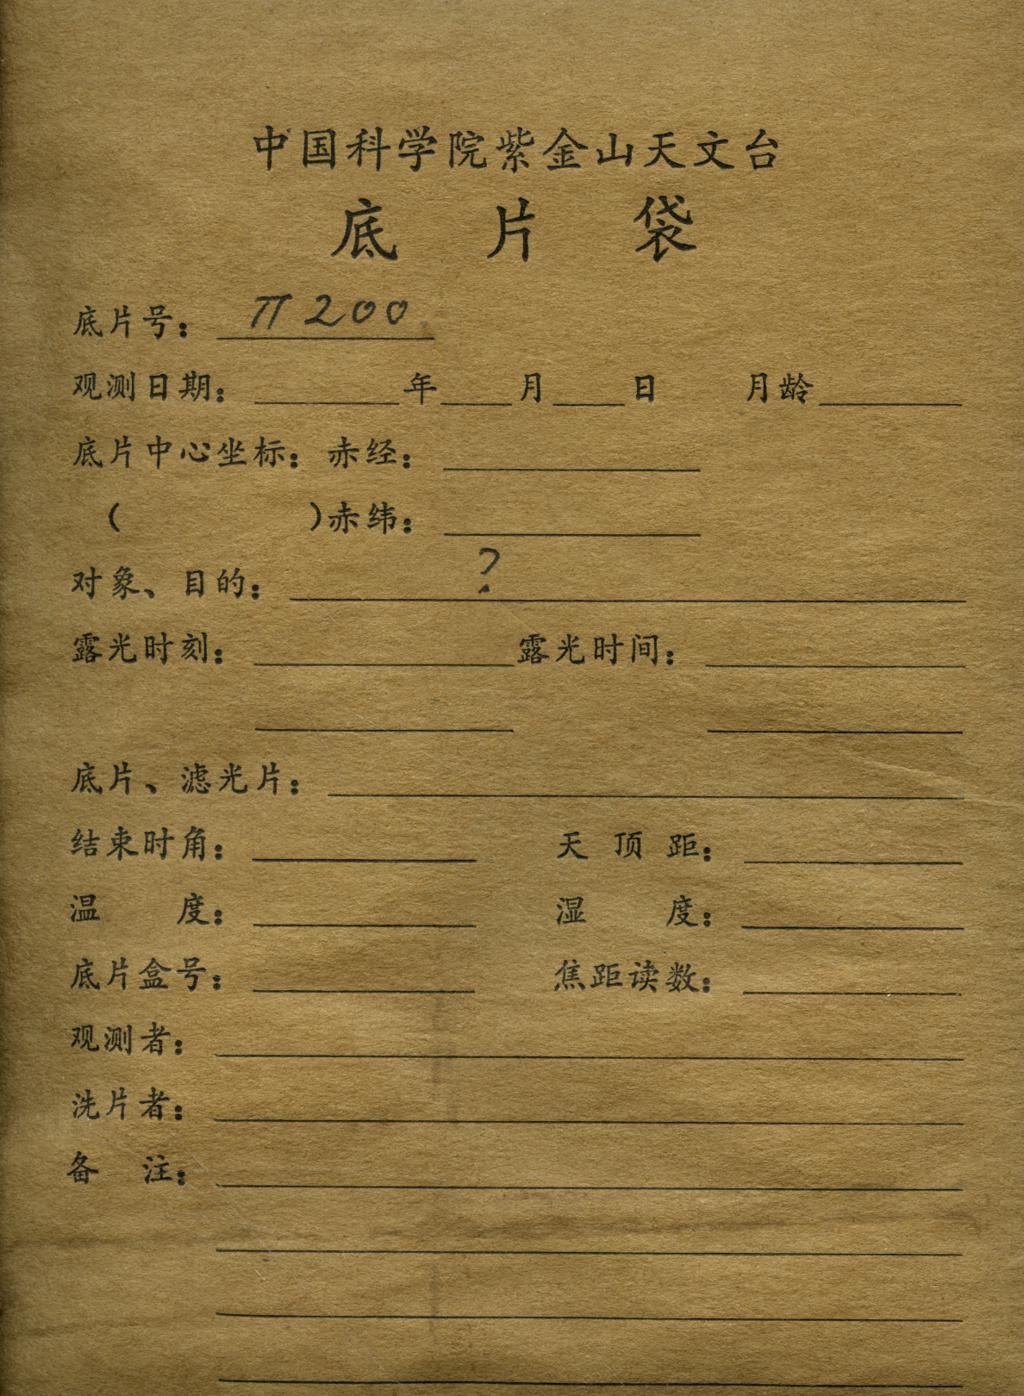 中国科学院紫金山天文台
底 片 袋
底片号： π200
观测日期： 年 月 日 月龄
底片中心坐标：赤经：
（ ）赤纬：
对象、目的： ?
露光时刻： 露光时间：
底片、滤光片：
结束时角： 天顶距：
温 度： 湿 度：
底片盒号： 焦距读数：
观测者：
洗片者：
备 注：